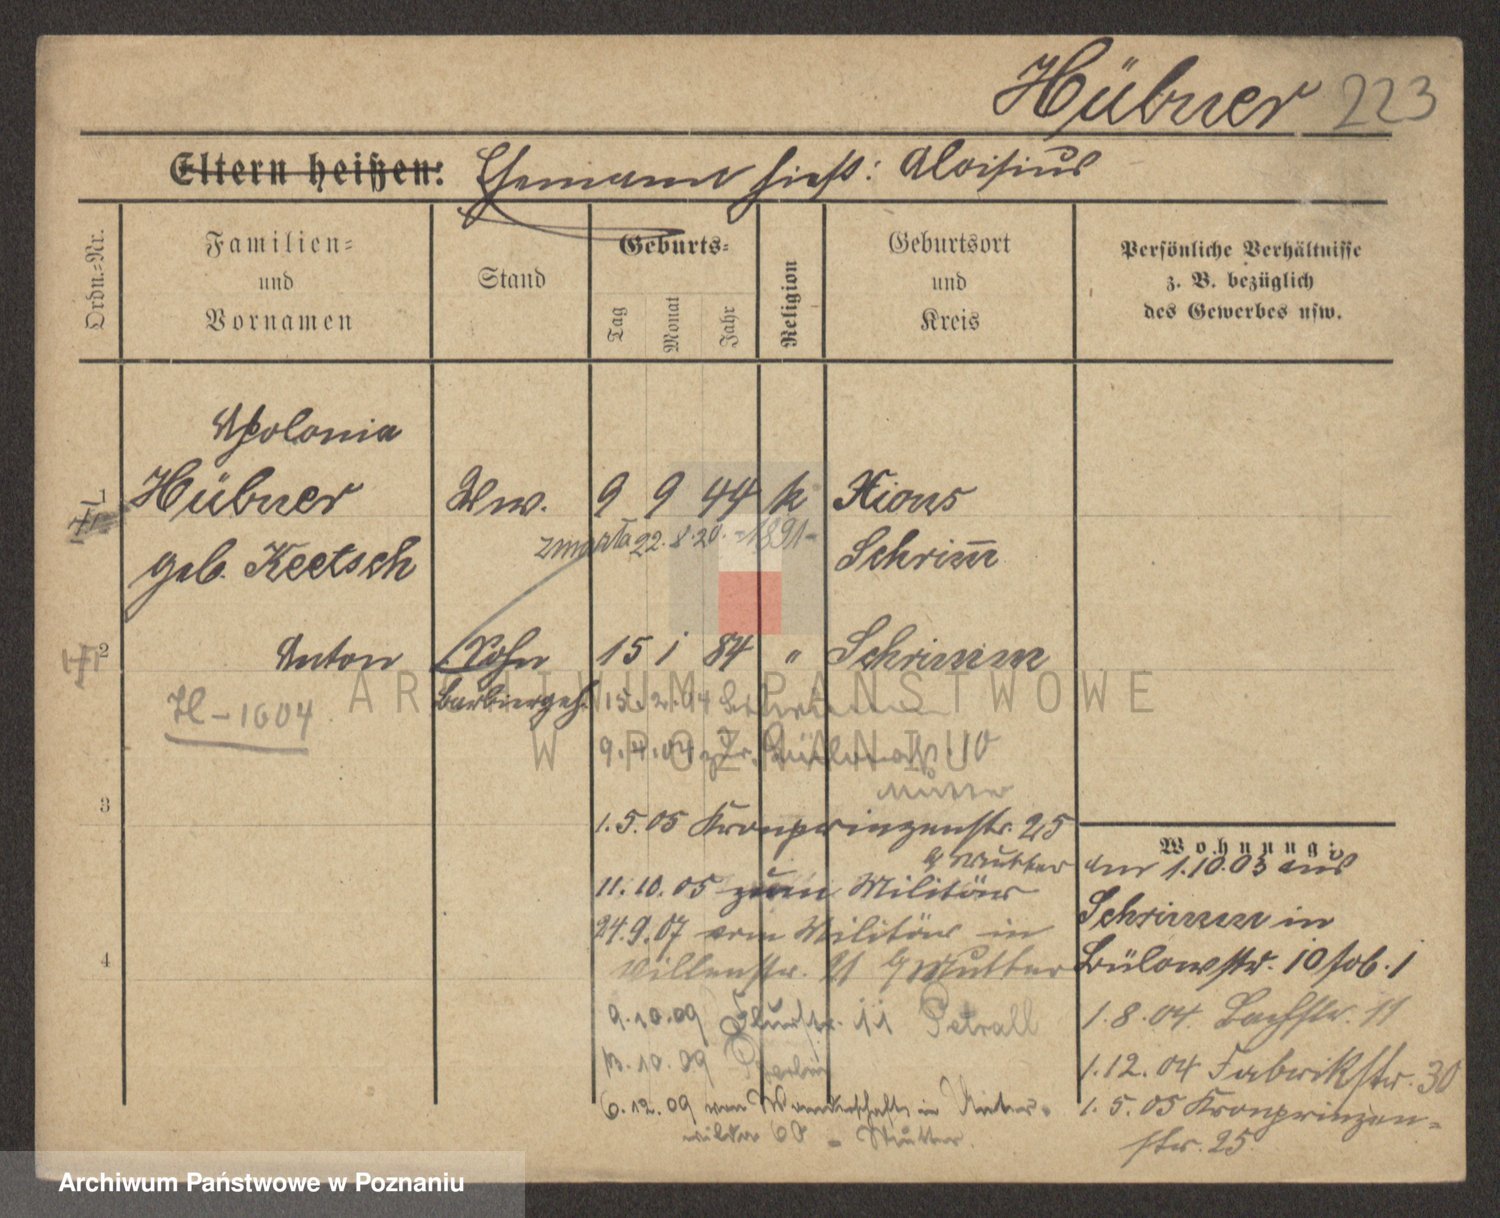 Hübner 223
Eltern heißen: Ehemann hieß: Aloisius
Ordn.=Nr.
Familien=
und
Vornamen
Stand
Geburts=
Tag
Monat
Jahr
Religion
Geburtsort
und
Kreis
Persönliche Verhältnisse
z. B. bezüglich
des Gewerbes usw.
Apolonia
1 Hübner Ww. 9 9 44 k Xions
zmarła 22. 8. 20. =1891=
geb. Keetsch Schrim̄
2 Anton Sohn 15 1 84 " Schrimm
H-1604 Barbiergeh. 15. 2. 04 Schrimm
9. 4. 04 Bülowstr. 10
Mutter
3
1. 5. 05 Kronprinzenstr. 25
Mutter
11. 10. 05 zum Militär
24. 9. 07 vom Militär in
4
Mutter
9. 10. 09 Flurstr. 11 Petrall
13. 10. 09
6. 12. 09 von Wanderschaft in
60 = Mutter
Wohnung:
am 1.10.03 aus
Schrimm in
Bülowstr. 10 1
1. 8. 04. Bachstr. 11
1. 12. 04 Fabrikstr. 30
1. 5. 05 Kronprinzen=
str. 25
ARCHIWUM PAŃSTWOWE
W POZNANIU
Archiwum Państwowe w Poznaniu